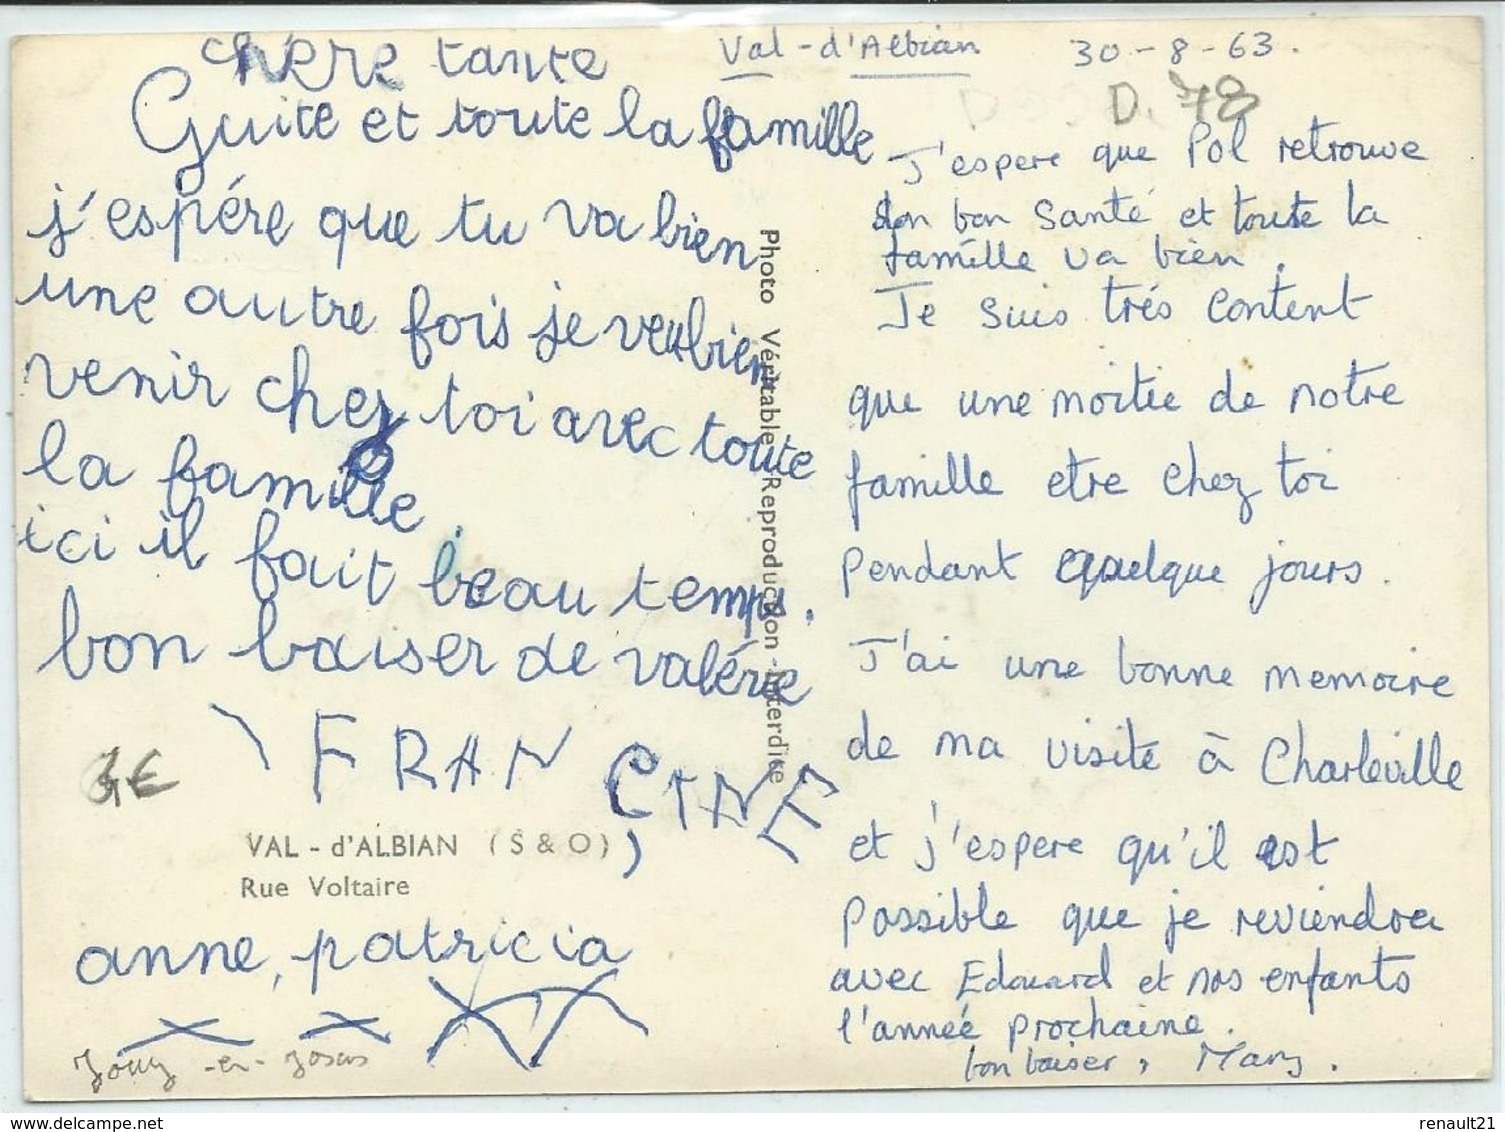 chère tante
Guite et toute la famille
j'espére que tu va bien
une autre fois je veubien
venir chez toi avec toute
la famille.
ici il fait beau temps.
bon baiser de valérie
FRANCINE,
VAL - d'ALBIAN (S & O)
Rue Voltaire
anne, patricia
Jouy-en-Josas
1€
Photo Véritable - Reproduction interdite
Val-d'Albian 30-8-63.
D. 78
J'espere que Pol retrouve
son bon santé et toute la
famille va bien.
Je suis trés content
que une moitie de notre
famille etre chez toi
pendant quelque jours.
J'ai une bonne memoire
de ma visite à Charleville
et j'espere qu'il est
possible que je reviendra
avec Edouard et nos enfants
l'anneé prochaine.
bon baiser, Mary.
delcampe.net
renault21